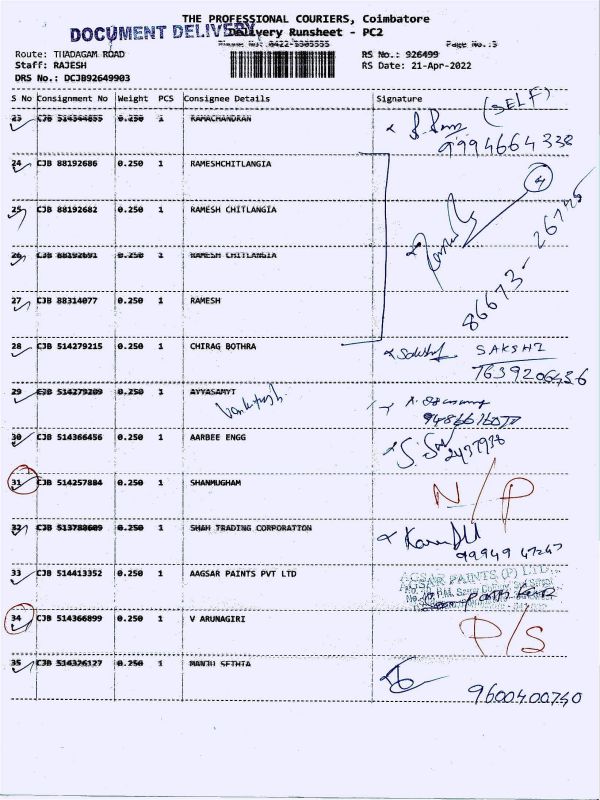 THE PROFESSIONAL COURIERS, Coimbatore
DOCUMENT DELIVERY
Delivery Runsheet - PC2
Page No.:3
Route: THADAGAM ROAD
RS No.: 926499
Staff: RAJESH
RS Date: 21-Apr-2022
DRS No.: DCJB92649903
S No Consignment No Weight PCS Consignee Details Signature
23 CJB 514364855 0.250 1 RAMACHANDRAN (SELF)
9994664338
24 CJB 88192686 0.250 1 RAMESHCHITLANGIA
4
25 CJB 88192682 0.250 1 RAMESH CHITLANGIA
26 CJB 88192691 0.250 1 RAMESH CHITLANGIA
27 CJB 88314077 0.250 1 RAMESH
86673 26746
28 CJB 514279215 0.250 1 CHIRAG BOTHRA SAKSHI
7639206436
29 CJB 514279209 0.250 1 AYYASAMYT
30 CJB 514366456 0.250 1 AARBEE ENGG
2437938
31 CJB 514257884 0.250 1 SHANMUGHAM N/P
32 CJB 513788609 0.250 1 SHAH TRADING CORPORATION
99949 47247
33 CJB 514413352 0.250 1 AAGSAR PAINTS PVT LTD
AGSAR PAINTS (P) LTD.,
34 CJB 514366899 0.250 1 V ARUNAGIRI P/S
35 CJB 514326127 0.250 1 MANJU SETHIA
9600400740